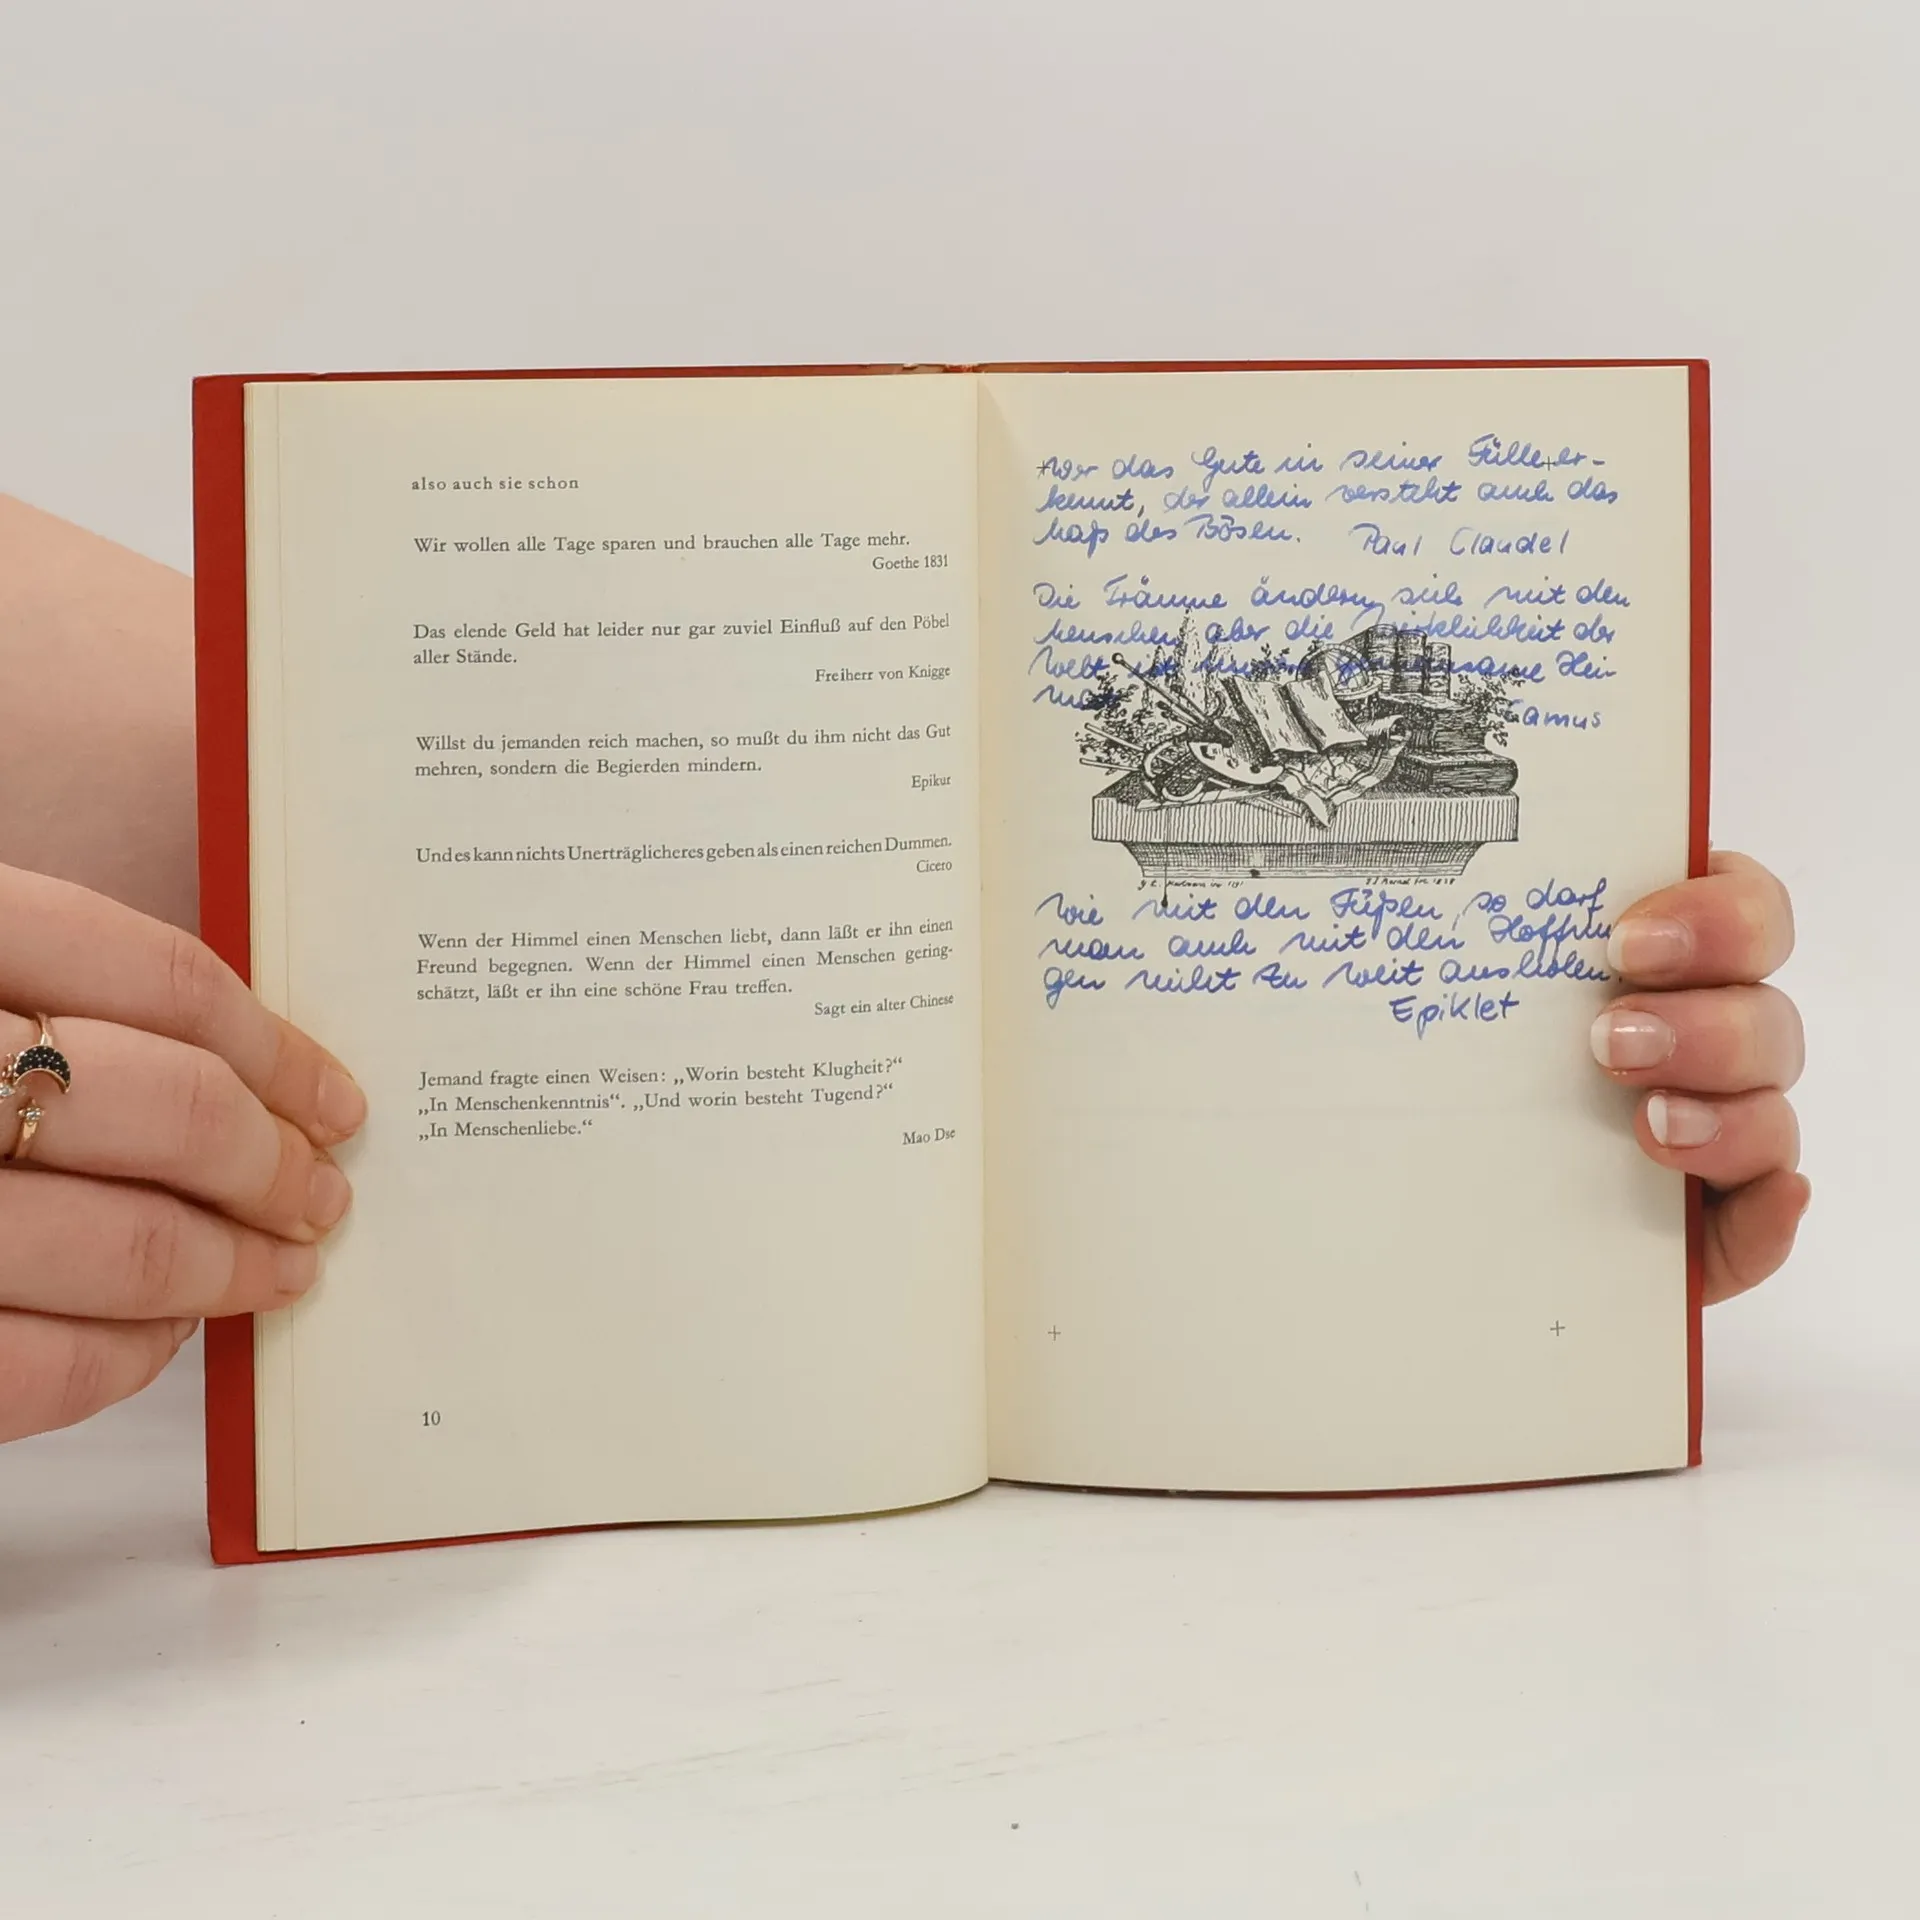 also auch sie schon
Wir wollen alle Tage sparen und brauchen alle Tage mehr.
Goethe 1831
Das elende Geld hat leider nur gar zuviel Einfluß auf den Pöbel
aller Stände.
Freiherr von Knigge
Willst du jemanden reich machen, so mußt du ihm nicht das Gut
mehren, sondern die Begierden mindern.
Epikur
Und es kann nichts Unerträglicheres geben als einen reichen Dummen.
Cicero
Wenn der Himmel einen Menschen liebt, dann läßt er ihn einen
Freund begegnen. Wenn der Himmel einen Menschen gering-
schätzt, läßt er ihn eine schöne Frau treffen.
Sagt ein alter Chinese
Jemand fragte einen Weisen: „Worin besteht Klugheit?“
„In Menschenkenntnis“. „Und worin besteht Tugend?“
„In Menschenliebe.“
Mao Dse
10
Wer das Gute in seiner Fülle er-
kennt, der allein versteht auch das
Maß des Bösen. Paul Claudel
Die Träume ändern sich mit den
Menschen aber die Wirklichkeit der
Welt ist unsere gemeinsame Hei-
mat
Camus
Wie mit den Füßen, so darf
man auch mit den Hoffnun
gen nicht zu weit ausholen.
Epiklet